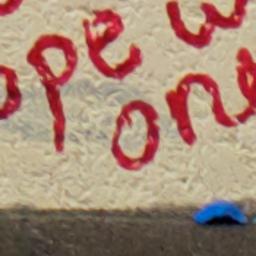 ope w
one